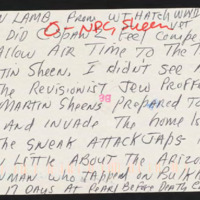 N LAMB FROM WITHATCH WWII
O- NPG Sheen of
DID C-SPAN 2 FEEL COMPE
ALLOW AIR TIME TO THE
TIN SHEEN. I DIDN'T SEE
THE REVISIONIST JEW PROFF
MARTIN SHEENS PREPARED TO
AND INVADE THE HOME IS
THE SNEAK ATTACK JAPS
LITTLE ABOUT THE ARIZO
MAN WHO TAPPED ON BULKH
17 DAYS AT PEARL BEFORE DEATH C